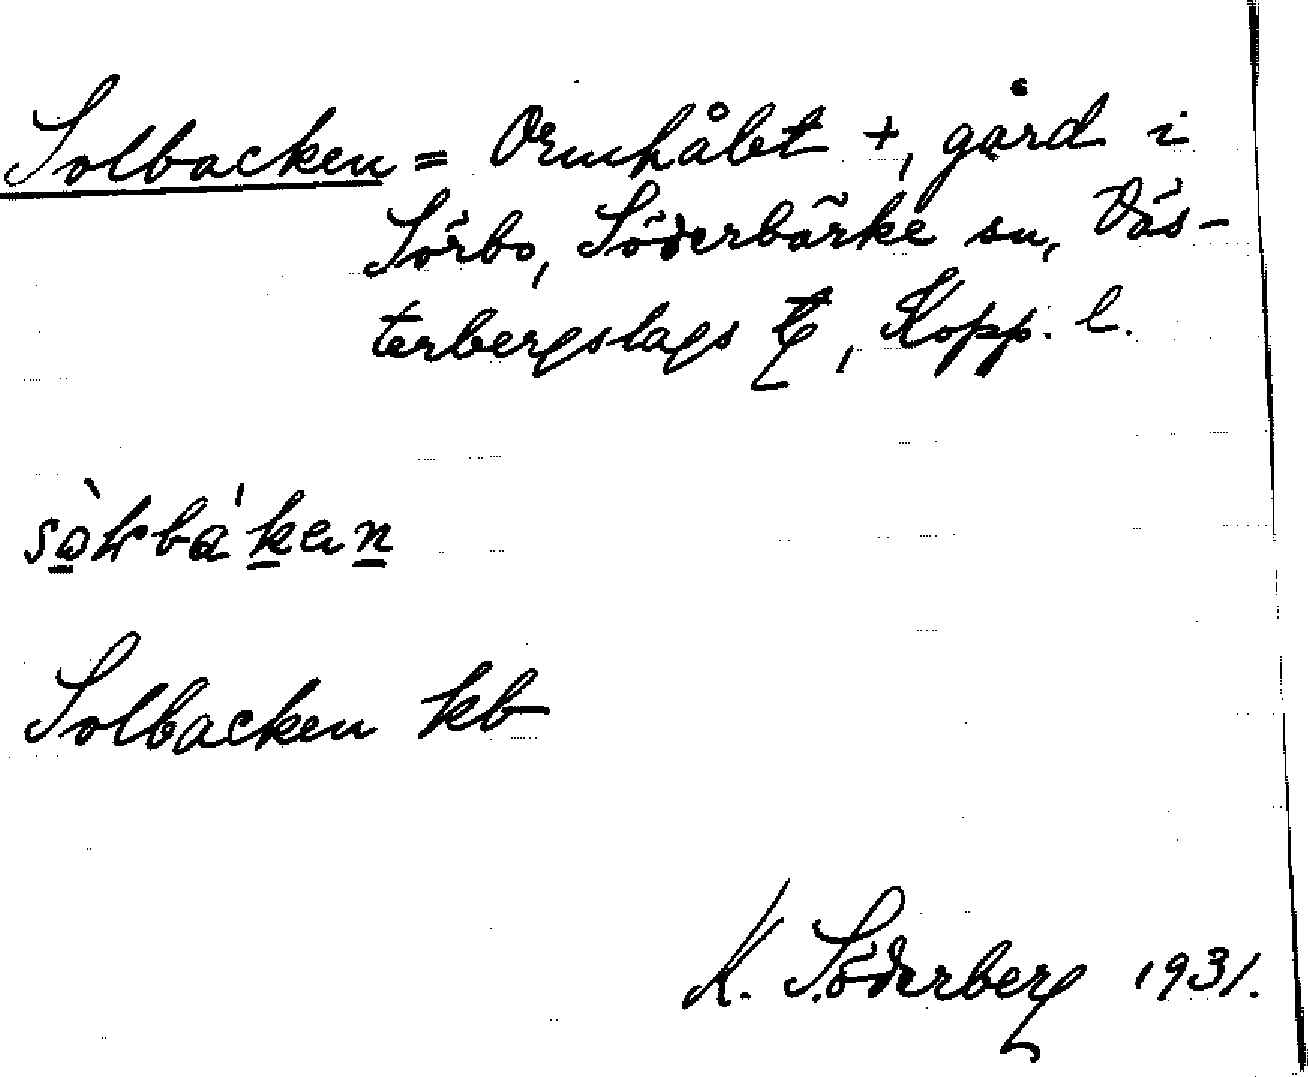 Solbacken = Ormhålet +, gård i
Sörbo, Söderbärke sn, Väs-
terbergslags tg, Kopp. l.
Solbacken kb
K. Söderberg 1931.